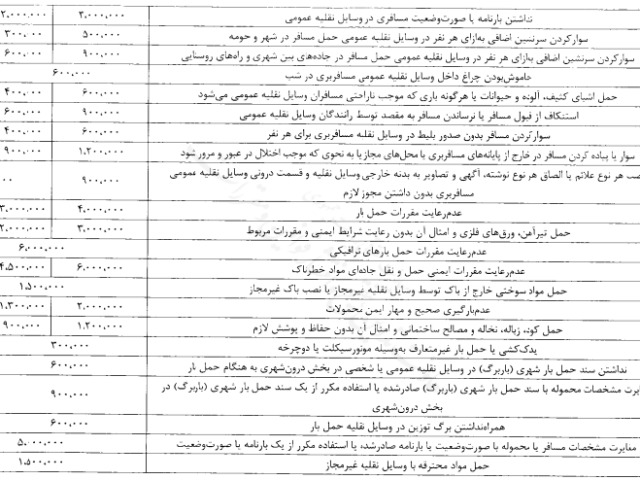 نداشتن بارنامه یا صورت‌وضعیت مسافری در وسایل نقلیه عمومی ۳,۰۰۰,۰۰۰ ۲,۰۰۰,۰۰۰
سوارکردن سرنشین اضافی به‌ازای هر نفر در وسایل نقلیه عمومی حمل مسافر در شهر و حومه ۵۰۰,۰۰۰ ۳۰۰,۰۰۰
سوارکردن سرنشین اضافی به‌ازای هر نفر در وسایل نقلیه عمومی حمل مسافر در جاده‌های بین شهری و راه‌های روستایی ۹۰۰,۰۰۰ ۶۰۰,۰۰۰
خاموش‌بودن چراغ داخل وسایل نقلیه عمومی مسافربری در شب ۶۰۰,۰۰۰
حمل اشیای کثیف، آلوده و حیوانات یا هرگونه باری که موجب ناراحتی مسافران وسایل نقلیه عمومی می‌شود ۶۰۰,۰۰۰ ۴۰۰,۰۰۰
استنکاف از قبول مسافر یا نرساندن مسافر به مقصد توسط رانندگان وسایل نقلیه عمومی ۹۰۰,۰۰۰ ۶۰۰,۰۰۰
سوارکردن مسافر بدون صدور بلیط در وسایل نقلیه مسافربری برای هر نفر ۶۰۰,۰۰۰ ۴۰۰,۰۰۰
سوار یا پیاده کردن مسافر در خارج از پایانه‌های مسافربری یا محل‌های مجاز یا به نحوی که موجب اختلال در عبور و مرور شود ۱,۲۰۰,۰۰۰ ۹۰۰,۰۰۰
هر نوع علائم یا الصاق هر نوع نوشته، آگهی و تصاویر به بدنه خارجی وسایل نقلیه و قسمت درونی وسایل نقلیه عمومی
مسافربری بدون داشتن مجوز لازم ۹۰۰,۰۰۰
عدم‌رعایت مقررات حمل بار ۴,۰۰۰,۰۰۰ ۳,۰۰۰,۰۰۰
حمل تیرآهن، ورق‌های فلزی و امثال آن بدون رعایت شرایط ایمنی و مقررات مربوط ۳,۰۰۰,۰۰۰ ۲,۰۰۰,۰۰۰
عدم‌رعایت مقررات حمل بارهای ترافیکی ۶,۰۰۰,۰۰۰
عدم‌رعایت مقررات ایمنی حمل و نقل جاده‌ای مواد خطرناک ۶,۰۰۰,۰۰۰ ۴,۵۰۰,۰۰۰
حمل مواد سوختی خارج از باک توسط وسایل نقلیه غیرمجاز یا نصب باک غیرمجاز ۱,۵۰۰,۰۰۰
عدم‌بارگیری صحیح و مهار ایمن محمولات ۲,۰۰۰,۰۰۰ ۱,۳۰۰,۰۰۰
حمل کود، زباله، نخاله و مصالح ساختمانی و امثال آن بدون حفاظ و پوشش لازم ۱,۲۰۰,۰۰۰ ۹۰۰,۰۰۰
یدک‌کشی یا حمل بار غیرمتعارف به‌وسیله موتورسیکلت یا دوچرخه ۳۰۰,۰۰۰
نداشتن سند حمل بار شهری (باربرگ) در وسایل نقلیه عمومی یا شخصی در بخش درون‌شهری به هنگام حمل بار ۶۰۰,۰۰۰
مشخصات محموله با سند حمل بار شهری (باربرگ) صادرشده یا استفاده مکرر از یک سند حمل بار شهری (باربرگ) در
بخش درون‌شهری ۹۰۰,۰۰۰
همراه‌نداشتن برگ توزین در وسایل نقلیه حمل بار ۶۰۰,۰۰۰
مغایرت مشخصات مسافر یا محموله با صورت‌وضعیت یا بارنامه صادرشده، یا استفاده مکرر از یک بارنامه یا صورت‌وضعیت ۵,۰۰۰,۰۰۰
حمل مواد محترقه با وسایل نقلیه غیرمجاز ۱,۵۰۰,۰۰۰